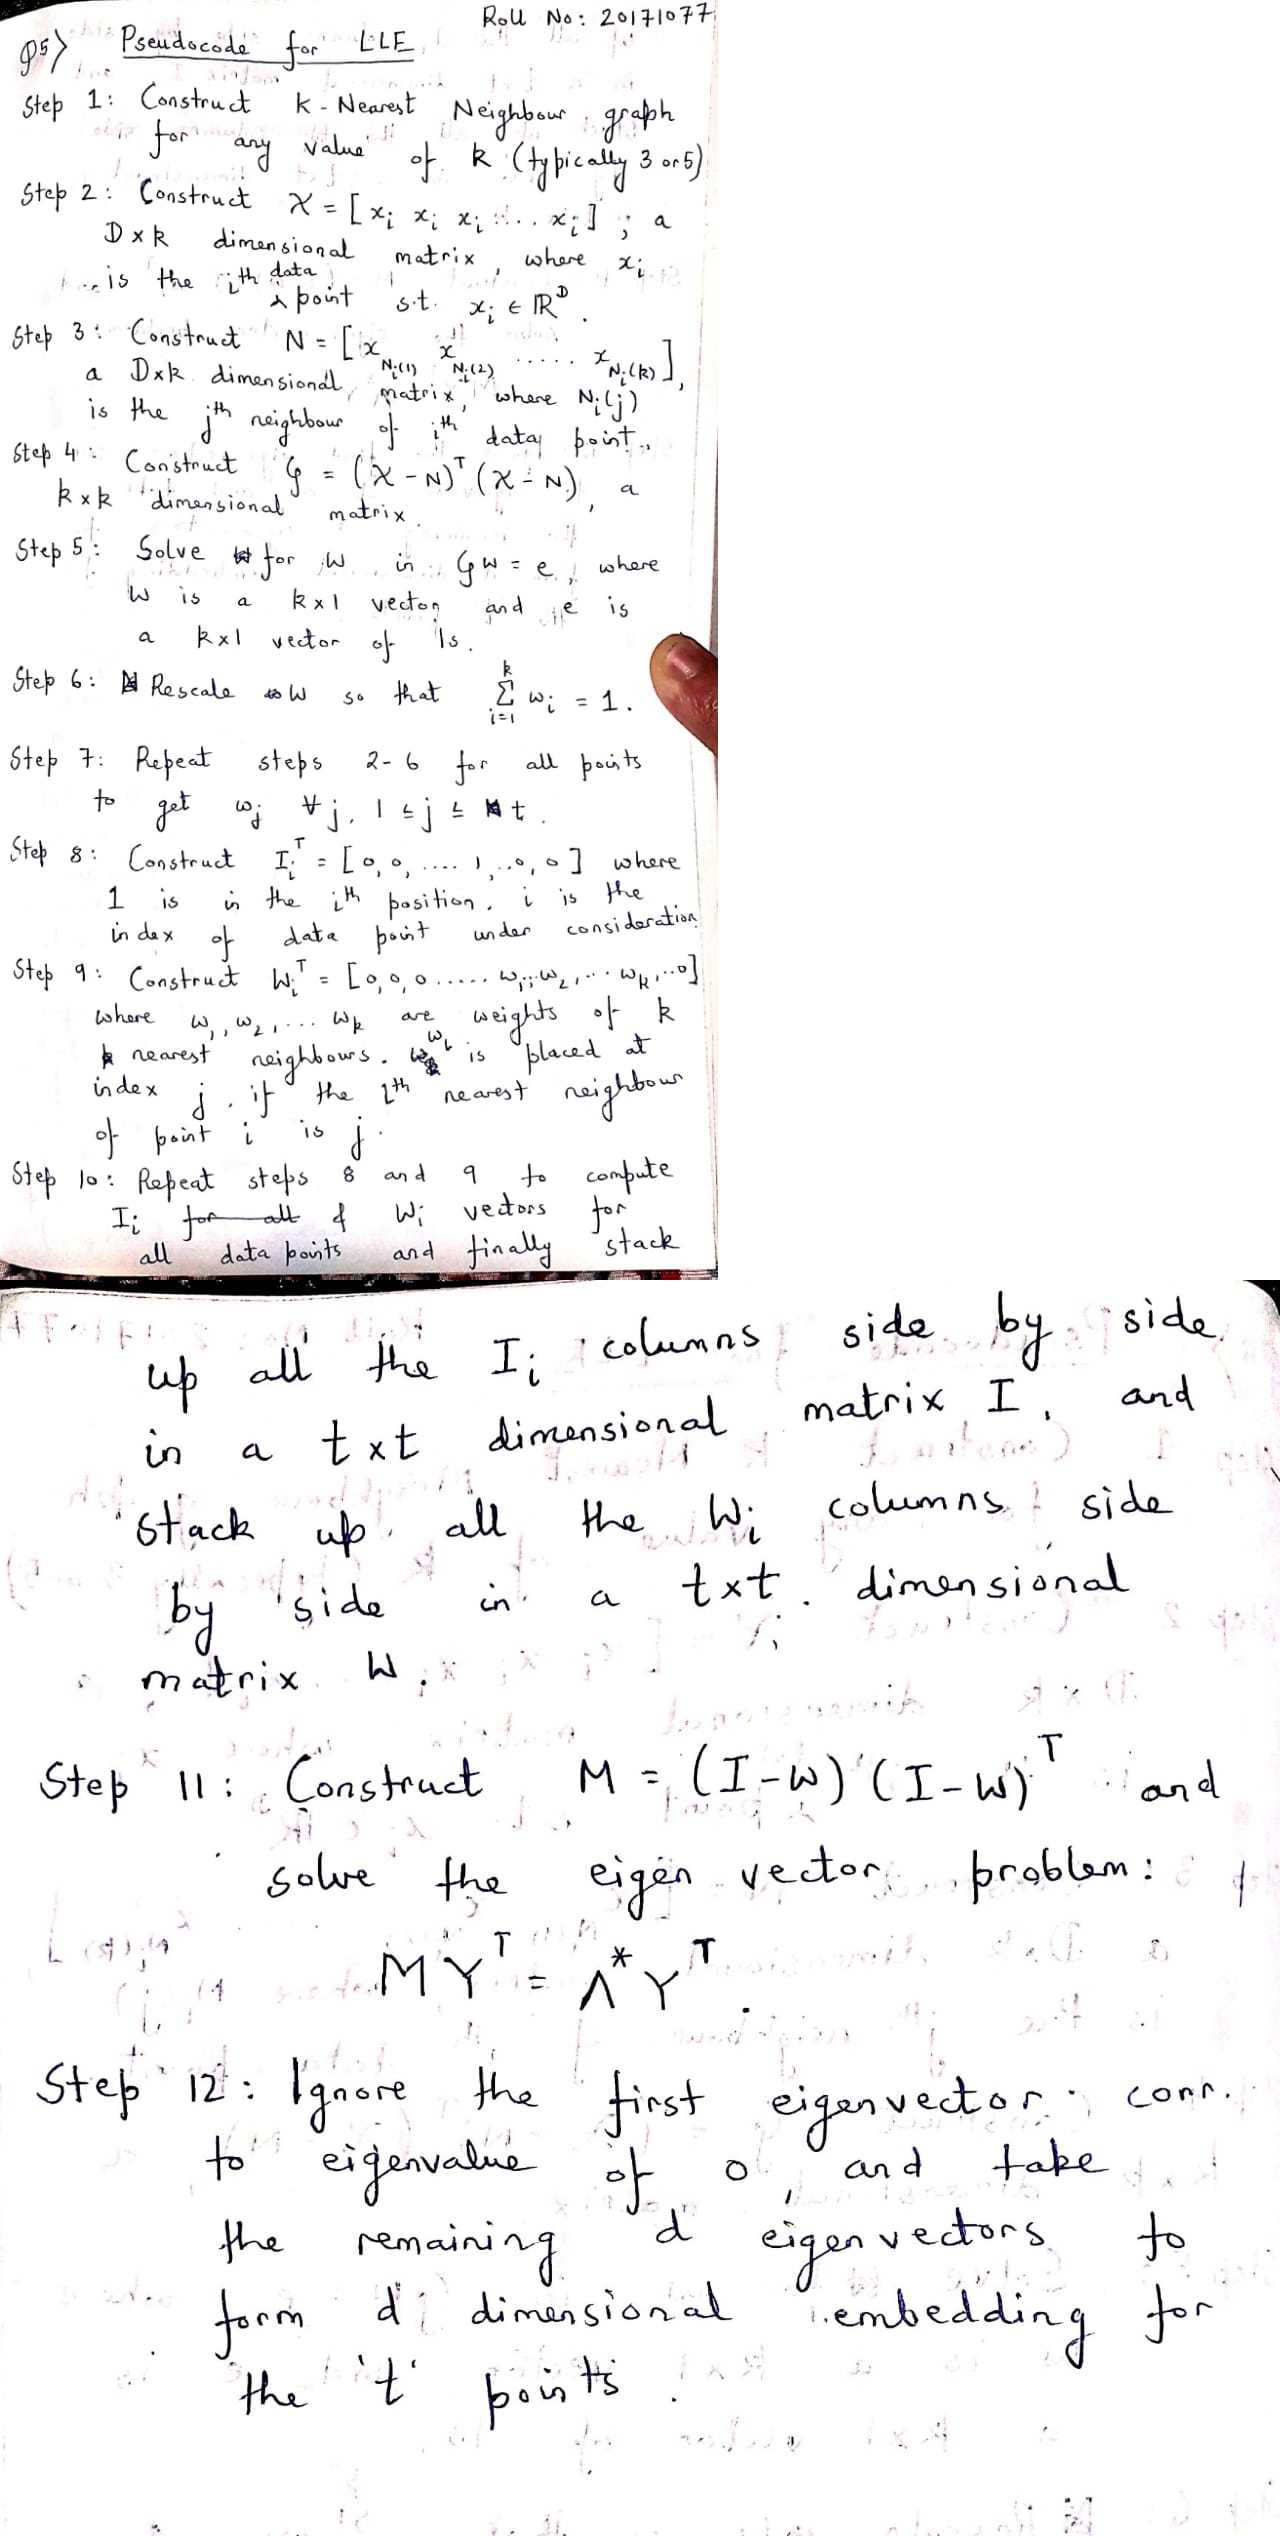 Roll No: 20171077
Q5> Pseudocode for LLE
Step 1: Construct k-Nearest Neighbour graph
for any value of k (typically 3 or 5)
Step 2: Construct X = [x_i x_i x_i .... x_i] ; a
D x k dimensional matrix, where x_i
is the ith data
point s.t. x_i ∈ ℝ^D.
Step 3: Construct N = [x_{N_i(1)} x_{N_i(2)} ..... x_{N_i(k)}],
a Dxk dimensional matrix, where N_i(j)
is the jth neighbour of ith data point.
Step 4: Construct G = (X - N)^T (X - N), a
k x k dimensional matrix.
Step 5: Solve for w in Gw = e, where
w is a k x 1 vector and e is
a k x 1 vector of 1s.
Step 6: Rescale w so that \sum_{i=1}^{k} w_i = 1.
Step 7: Repeat steps 2-6 for all points
to get w_j ∀ j, 1 ≤ j ≤ t.
Step 8: Construct I_i^T = [0, 0, .... 1, ..0, 0] where
1 is in the ith position. i is the
index of data point under consideration
Step 9: Construct W_i^T = [0, 0, 0 ..... w_1, w_2, ... w_k, ..0]
where w_1, w_2, ... w_k are weights of k
nearest neighbours. w_l is placed at
index j, if the lth nearest neighbour
of point i is j.
Step 10: Repeat steps 8 and 9 to compute
I_i for all & W_i vectors for
all data points and finally stack
up all the I_i columns side by side
in a t x t dimensional matrix I, and
stack up all the W_i columns side
by side in a t x t dimensional
matrix W.
Step 11: Construct M = (I - W) (I - W)^T and
solve the eigen vector problem:
M Y^T = Λ^* Y^T.
Step 12: Ignore the first eigenvector corr.
to eigenvalue of 0, and take
the remaining d eigen vectors to
form d dimensional embedding for
the 't' points.